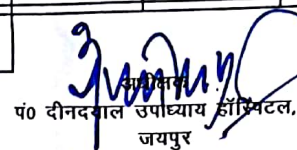 अधीक्षक
पं0 दीनदयाल उपाध्याय हॉस्पिटल,
जयपुर